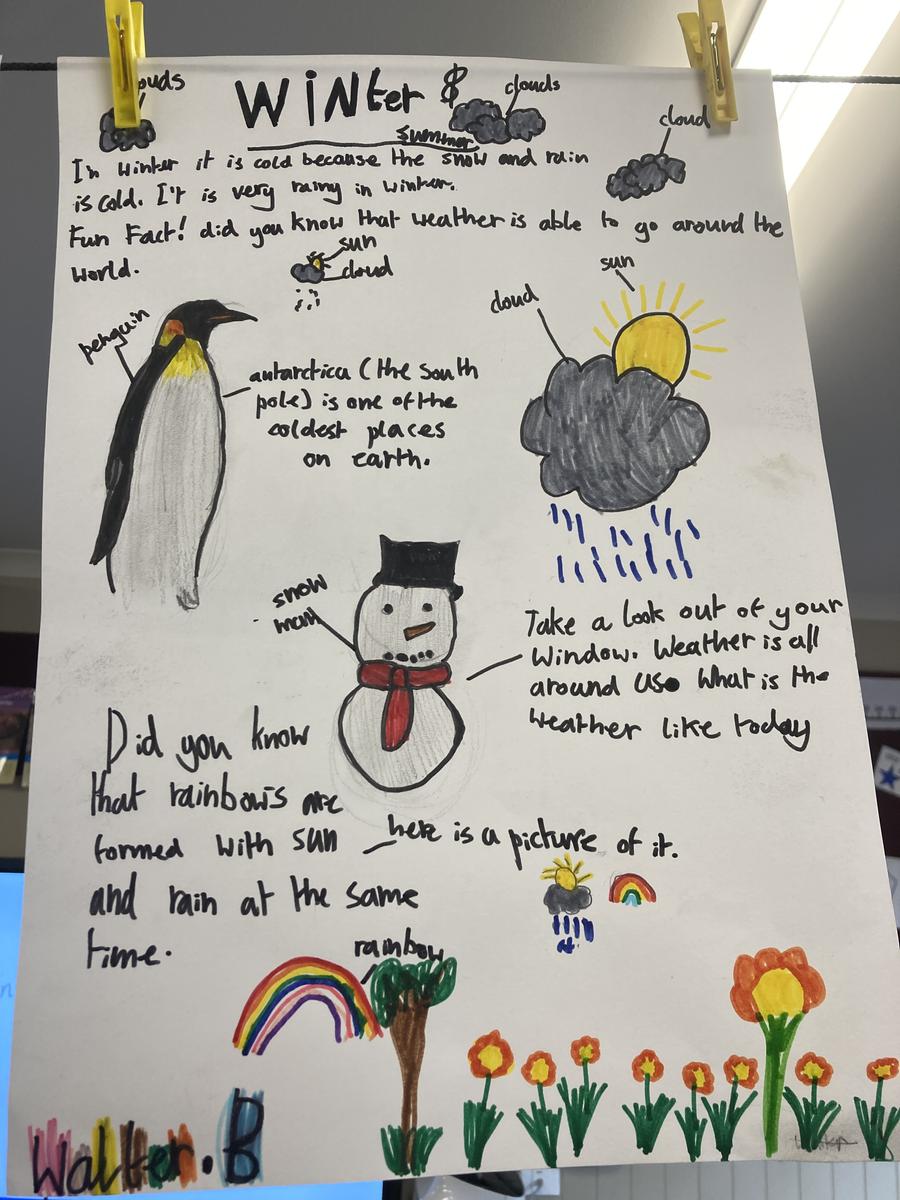 ouds
WiNter &
summer
clouds
cloud
In winter it is cold because the snow and rain
is cold. It is very rainy in winter.
Fun Fact! did you know that weather is able to go around the
world.
sun
cloud
penguin
antarctica (the south
pole) is one of the
coldest places
on earth.
cloud
sun
snow
man
Take a look out of your
window. Weather is all
around us. What is the
weather like today
Did you know
that rainbows are
formed with sun
and rain at the same
time.
here is a picture of it.
rainbow
Walter.B